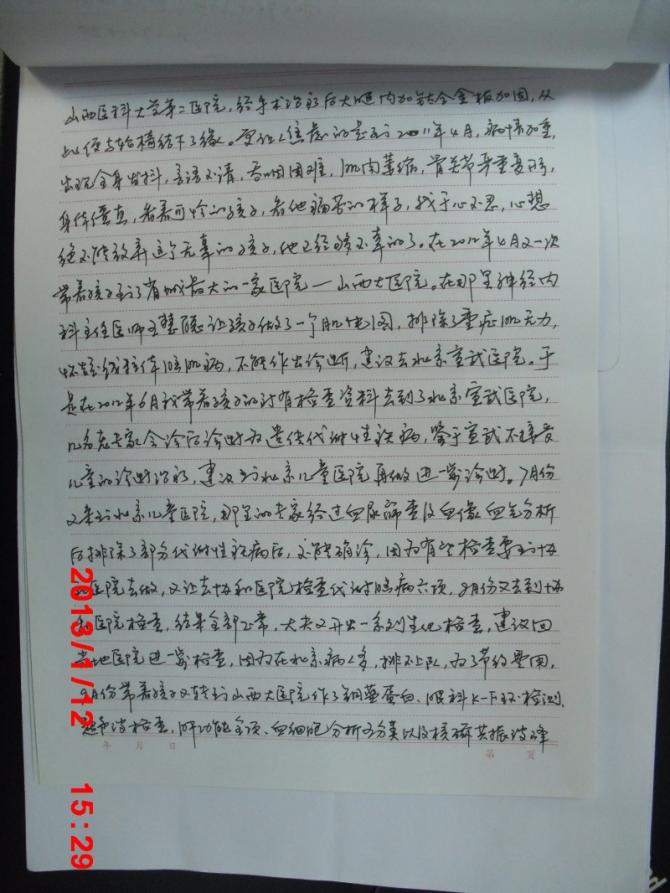 山西医科大学第二医院,经手术治疗后大腿内加钛合金板加固,从
此便与轮椅结下了缘。更让人焦虑的是到2011年4月,病情加重,
出现全身发抖,言语不清,吞咽困难,肌肉萎缩,骨关节严重变形,
身体僵直,看着可怜的孩子,看他痛苦的样子,我于心不忍,心想
绝不能放弃这个无辜的孩子,他已经够不幸的了。在2012年4月又一次
带着孩子到了省城最大的一家医院—山西大医院。在那里神经内
科主任医师王慧聪让孩子做了一个肌电图,排除了重症肌无力,
怀疑线粒体脑肌病,不能作出诊断,建议去北京宣武医院。于
是在2012年6月我带着孩子的所有检查资料去到了北京宣武医院,
几名老专家会诊后诊断为遗传代谢性疾病,鉴于宣武不接受
儿童的诊断治疗,建议到北京儿童医院再做进一步诊断。7月份
又来到北京儿童医院,那里的专家经过血尿筛查及血像血气分析
后排除了部分代谢性疾病后,不能确诊,因为有些检查要到协
和医院去做,又让去协和医院检查代谢脑病六项,8月份又去到协
和医院检查,结果全部正常,大夫又开出一系列生化检查,建议回
当地医院进一步检查,因为在北京病人多,排不上队,为了节约费用,
9月份带着孩子又转到山西大医院作了铜蓝蛋白、眼科K-F环检测、
超声波检查,肝功能全项、血细胞分析五分类以及核磁共振波峰
年 月 日
第 页
2013/1/12 15:29